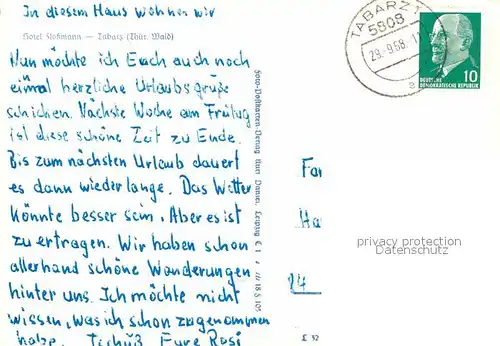 In diesem Haus wohnen wir
Hotel Floßmann — Tabarz (Thür. Wald)
Nun möchte ich Euch auch noch
einmal herzliche Urlaubsgrüße
schicken. Nächste Woche am Freitag
ist diese schöne Zeit zu Ende.
Bis zum nächsten Urlaub dauert
es dann wieder lange. Das Wetter
könnte besser sein. Aber es ist
zu ertragen. Wir haben schon
allerhand schöne Wanderungen
hinter uns. Ich möchte nicht
wissen, was ich schon zugenommen
habe. Tschüß Eure Rosi
Foto-Postkarten-Verlag Leipzig C 1
18 5 105
TABARZ
5808
29.-9.68
a
DEUTSCHE
DEMOKRATISCHE REPUBLIK
10
Fa
Ha
24
privacy protection
Datenschutz